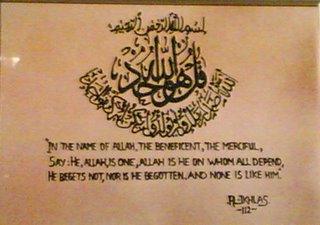 بسم الله الرحمن الرحيم
قل هو الله احد
الله الصمد لم يلد ولم يولد ولم يكن له كفوا احد
"IN THE NAME OF ALLAH, THE BENEFICENT, THE MERCIFUL,
SAY: HE, ALLAH, IS ONE, ALLAH IS HE ON WHOM ALL DEPEND,
HE BEGETS NOT, NOR IS HE BEGOTTEN. AND NONE IS LIKE HIM."
AL-IKHLAS
-112-